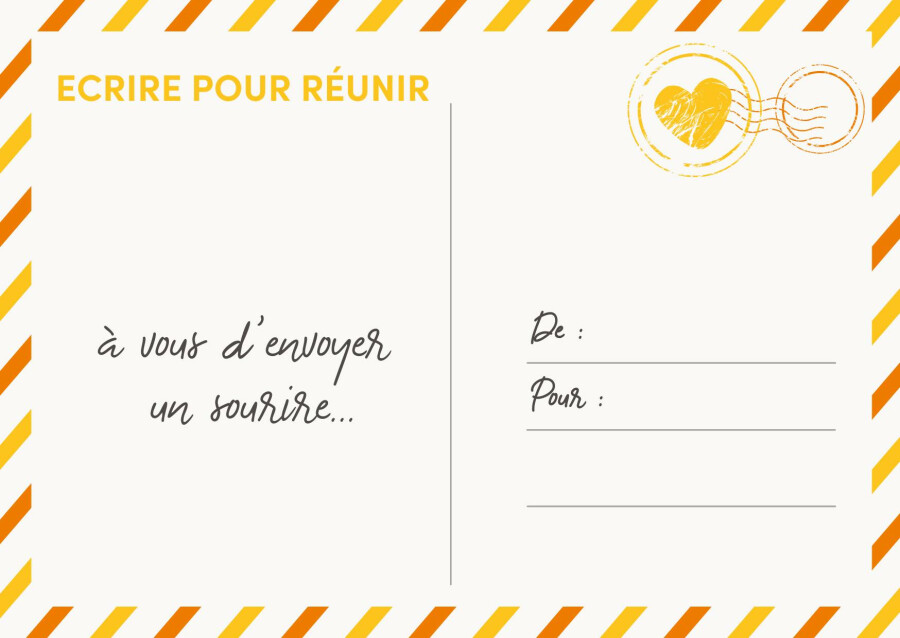 ECRIRE POUR RÉUNIR
à vous d'envoyer
un sourire...
De :
Pour :